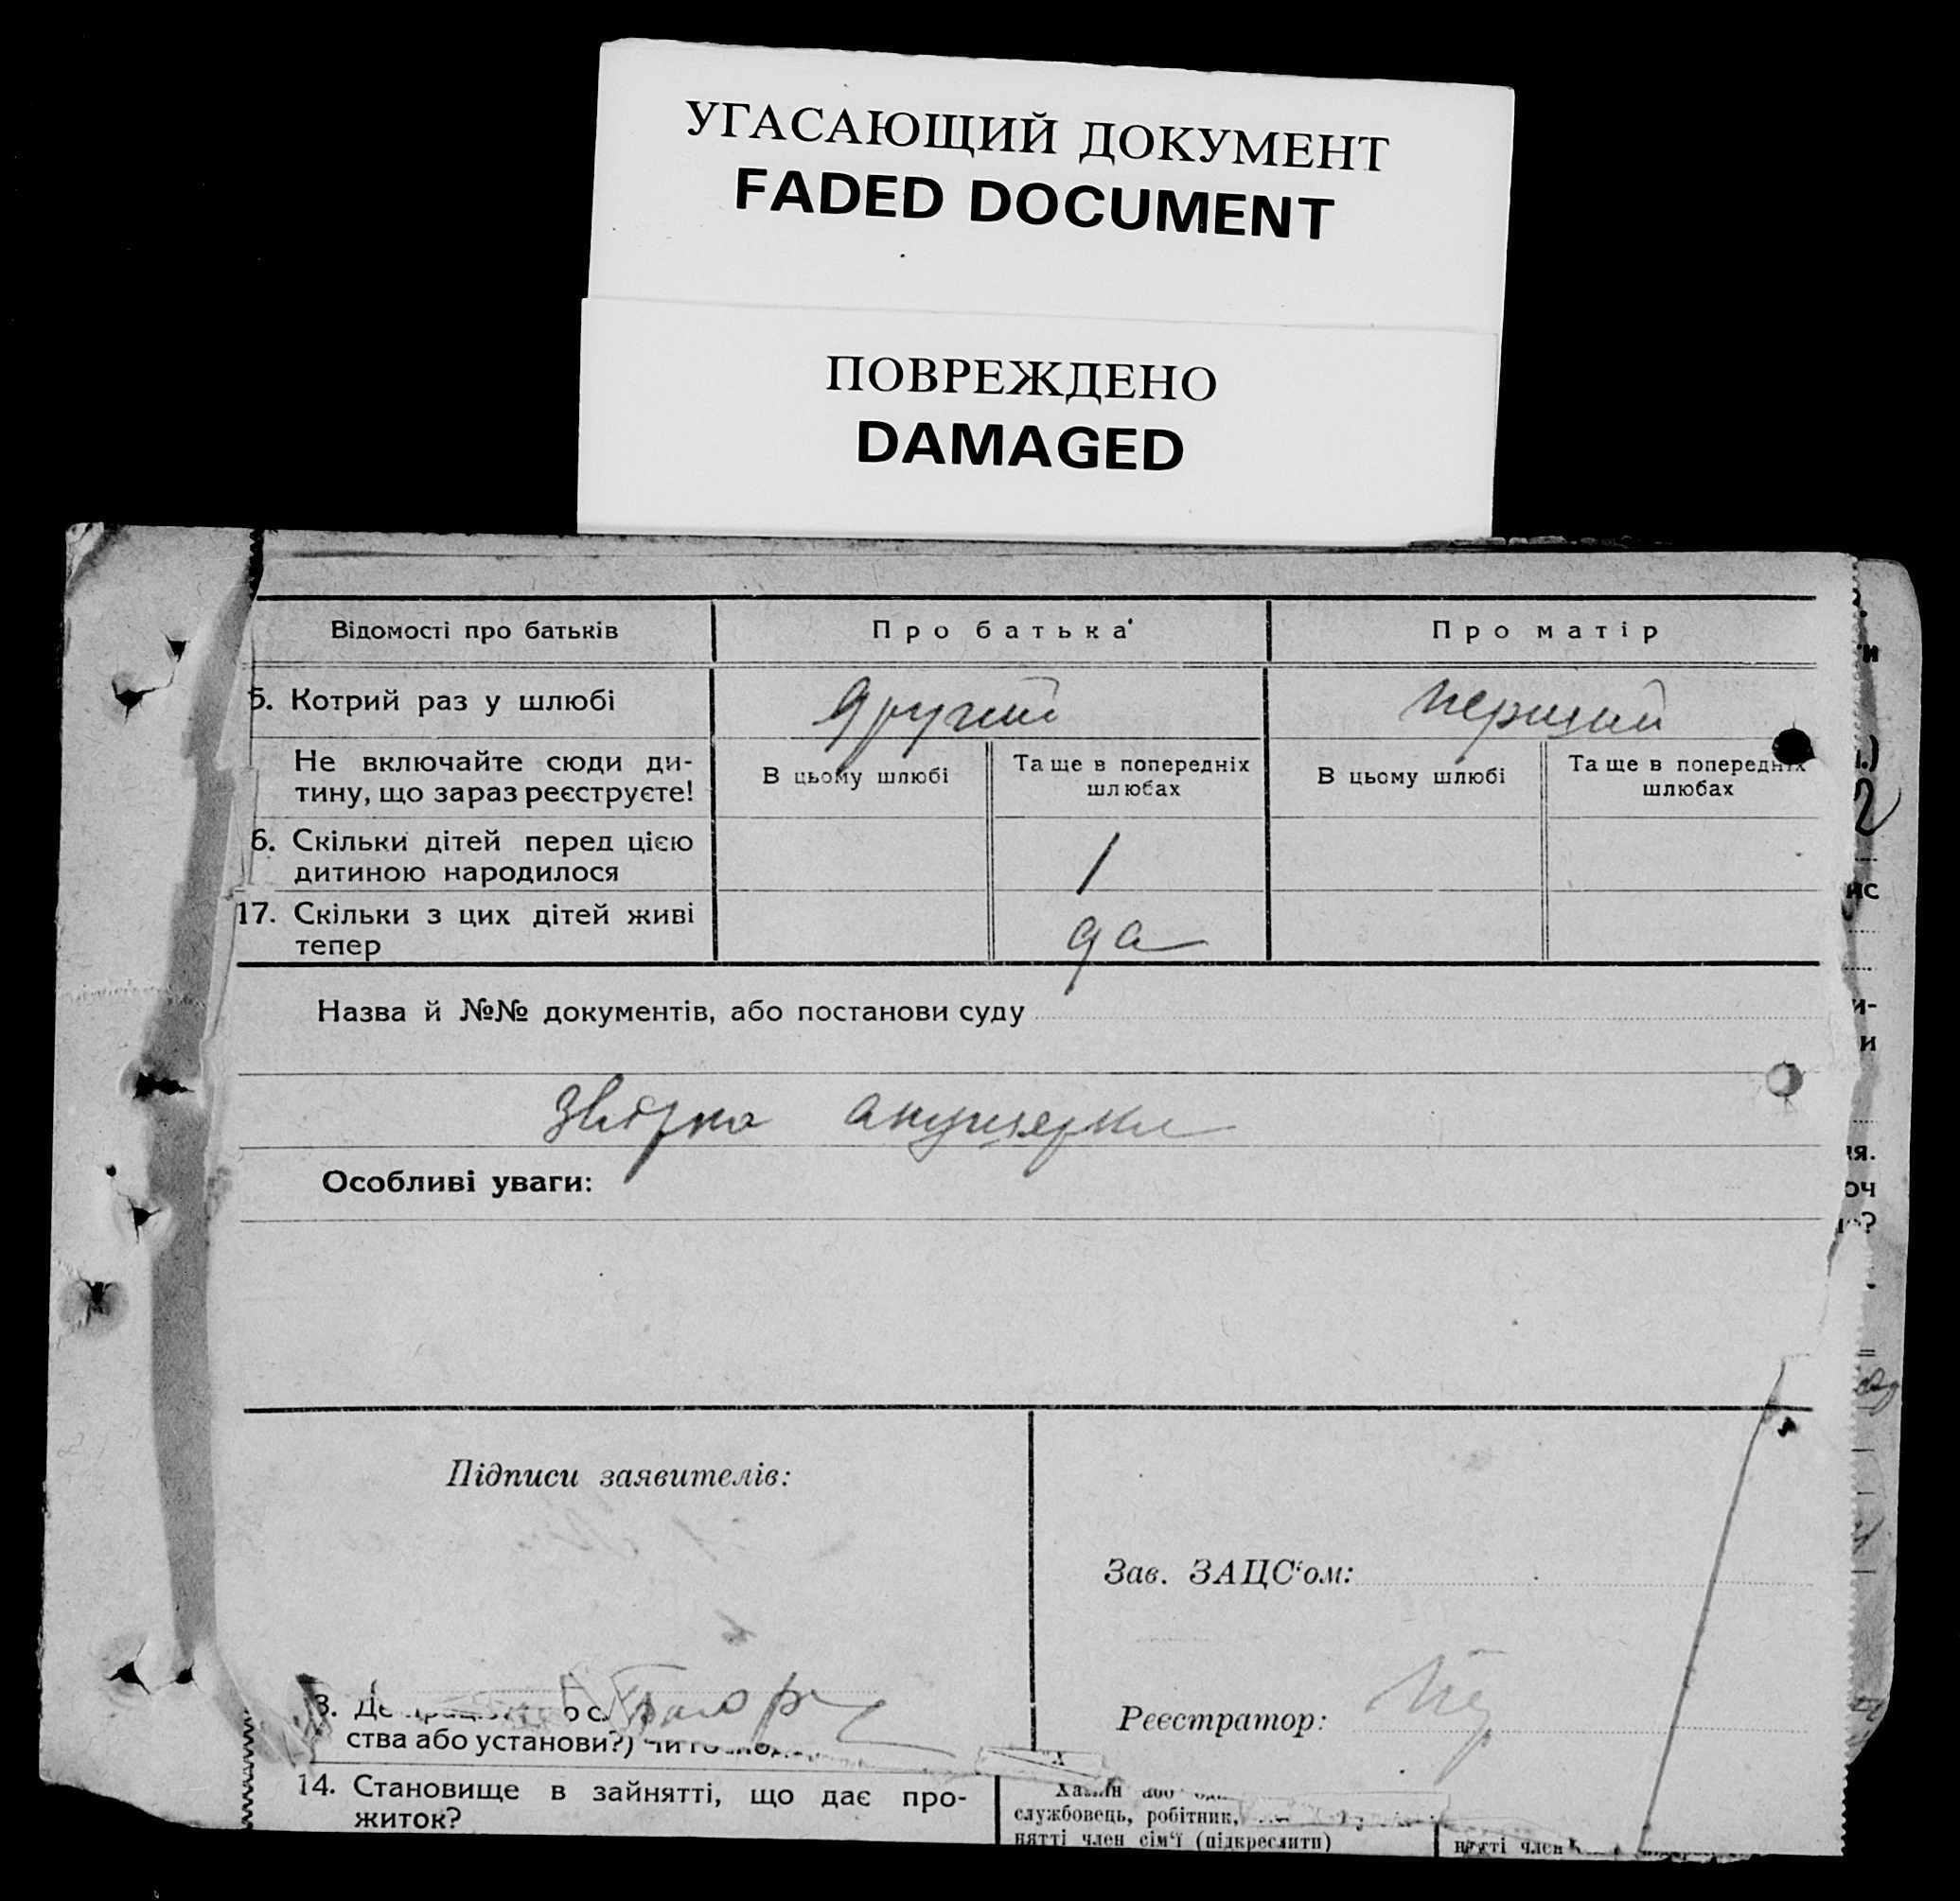 УГАСАЮЩИЙ ДОКУМЕНТ
FADED DOCUMENT
ПОВРЕЖДЕНО
DAMAGED
Відомості про батьків
Про батька
Про матір
5. Котрий раз у шлюбі
другий
перший
Не включайте сюди ди-
тину, що зараз реєструєте!
В цьому шлюбі
Та ще в попередніх
шлюбах
В цьому шлюбі
Та ще в попередніх
шлюбах
6. Скільки дітей перед цією
дитиною народилося
1
17. Скільки з цих дітей живі
тепер
да
Назва й №№ документів, або постанови суду
акушерки
Особливі уваги:
Підписи заявителів:
Зав. ЗАЦС'ом:
Реєстратор:
ства або установи?)
14. Становище в зайнятті, що дає про-
житок?
службовець, робітник,
нятті член сім'ї (підкреслити)
нятті член